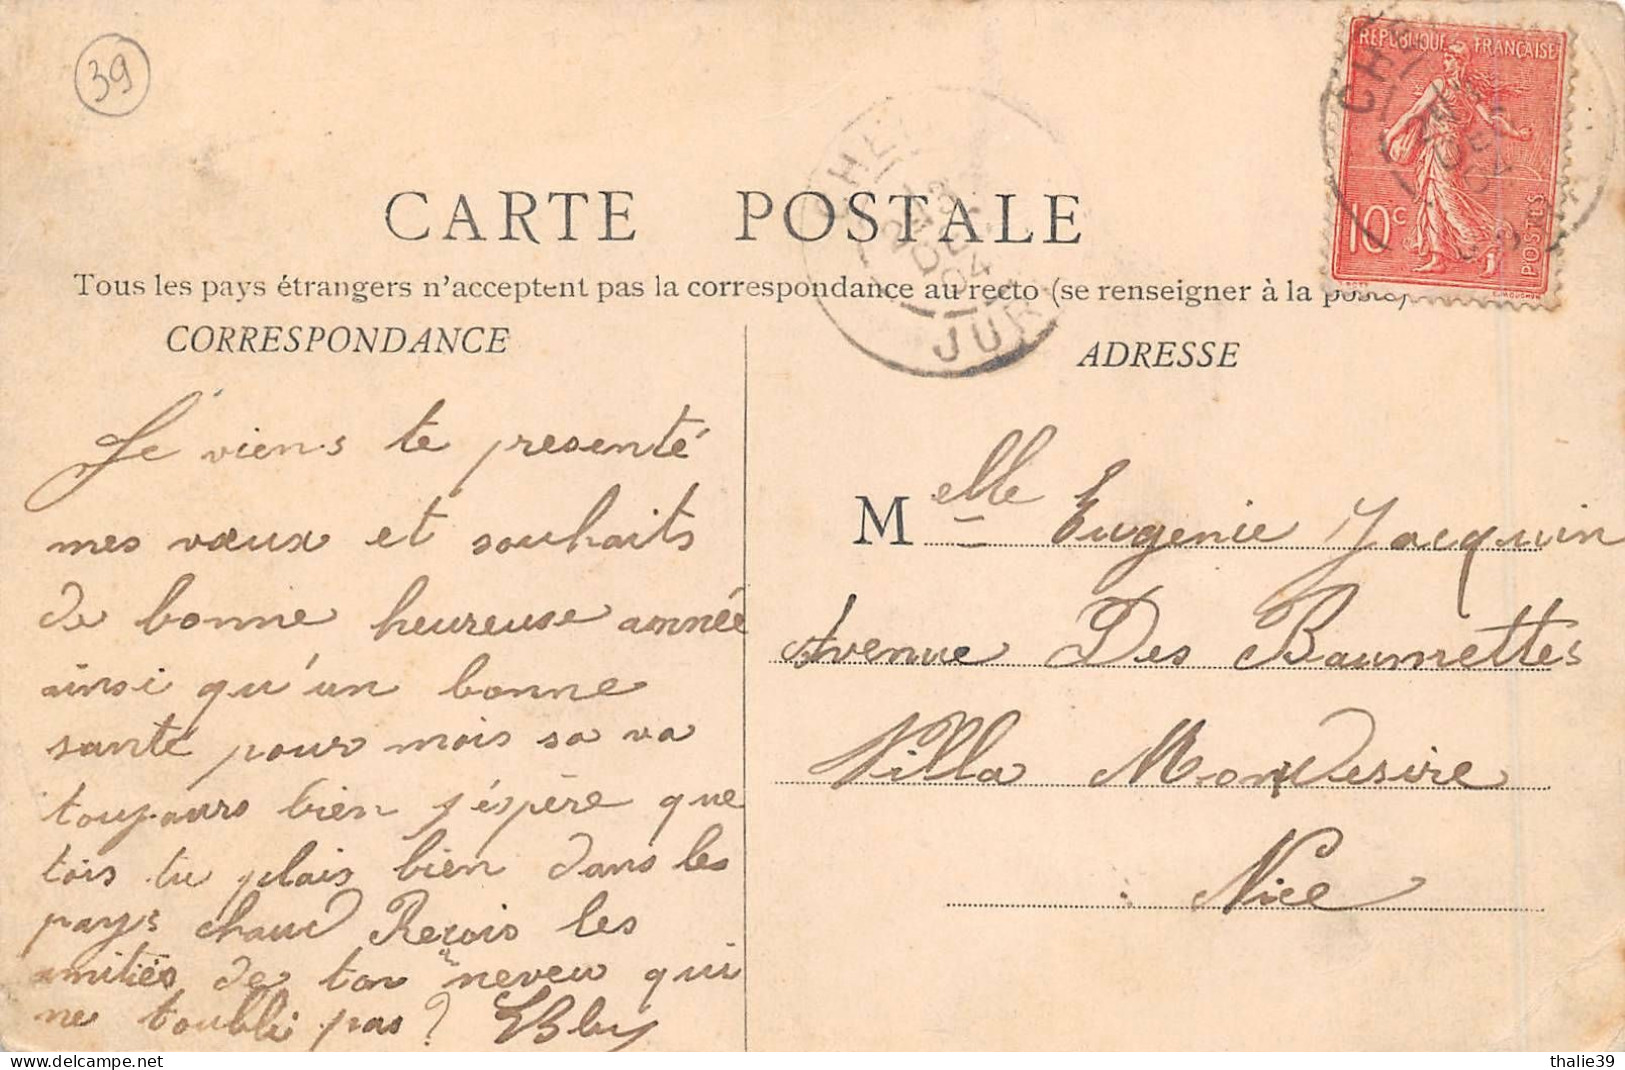 39
RÉPUBLIQUE FRANÇAISE
10c
POSTES
DEC
04
JURA
CARTE POSTALE
Tous les pays étrangers n'acceptent pas la correspondance au recto (se renseigner à la poste)
CORRESPONDANCE
Je viens te presenté
mes vœux et souhaits
de bonne heureuse année
ainsi qu'un bonne
santé pour mois sa va
toujours bien j'éspère que
tois tu plais bien dans les
pays chaud Reçois les
amitiés de ton neveu qui
ne toublie pas
ADRESSE
Melle Eugenie Jacquin
Avenue Des Baumettes
Villa MonDesire
Nice
thalie39